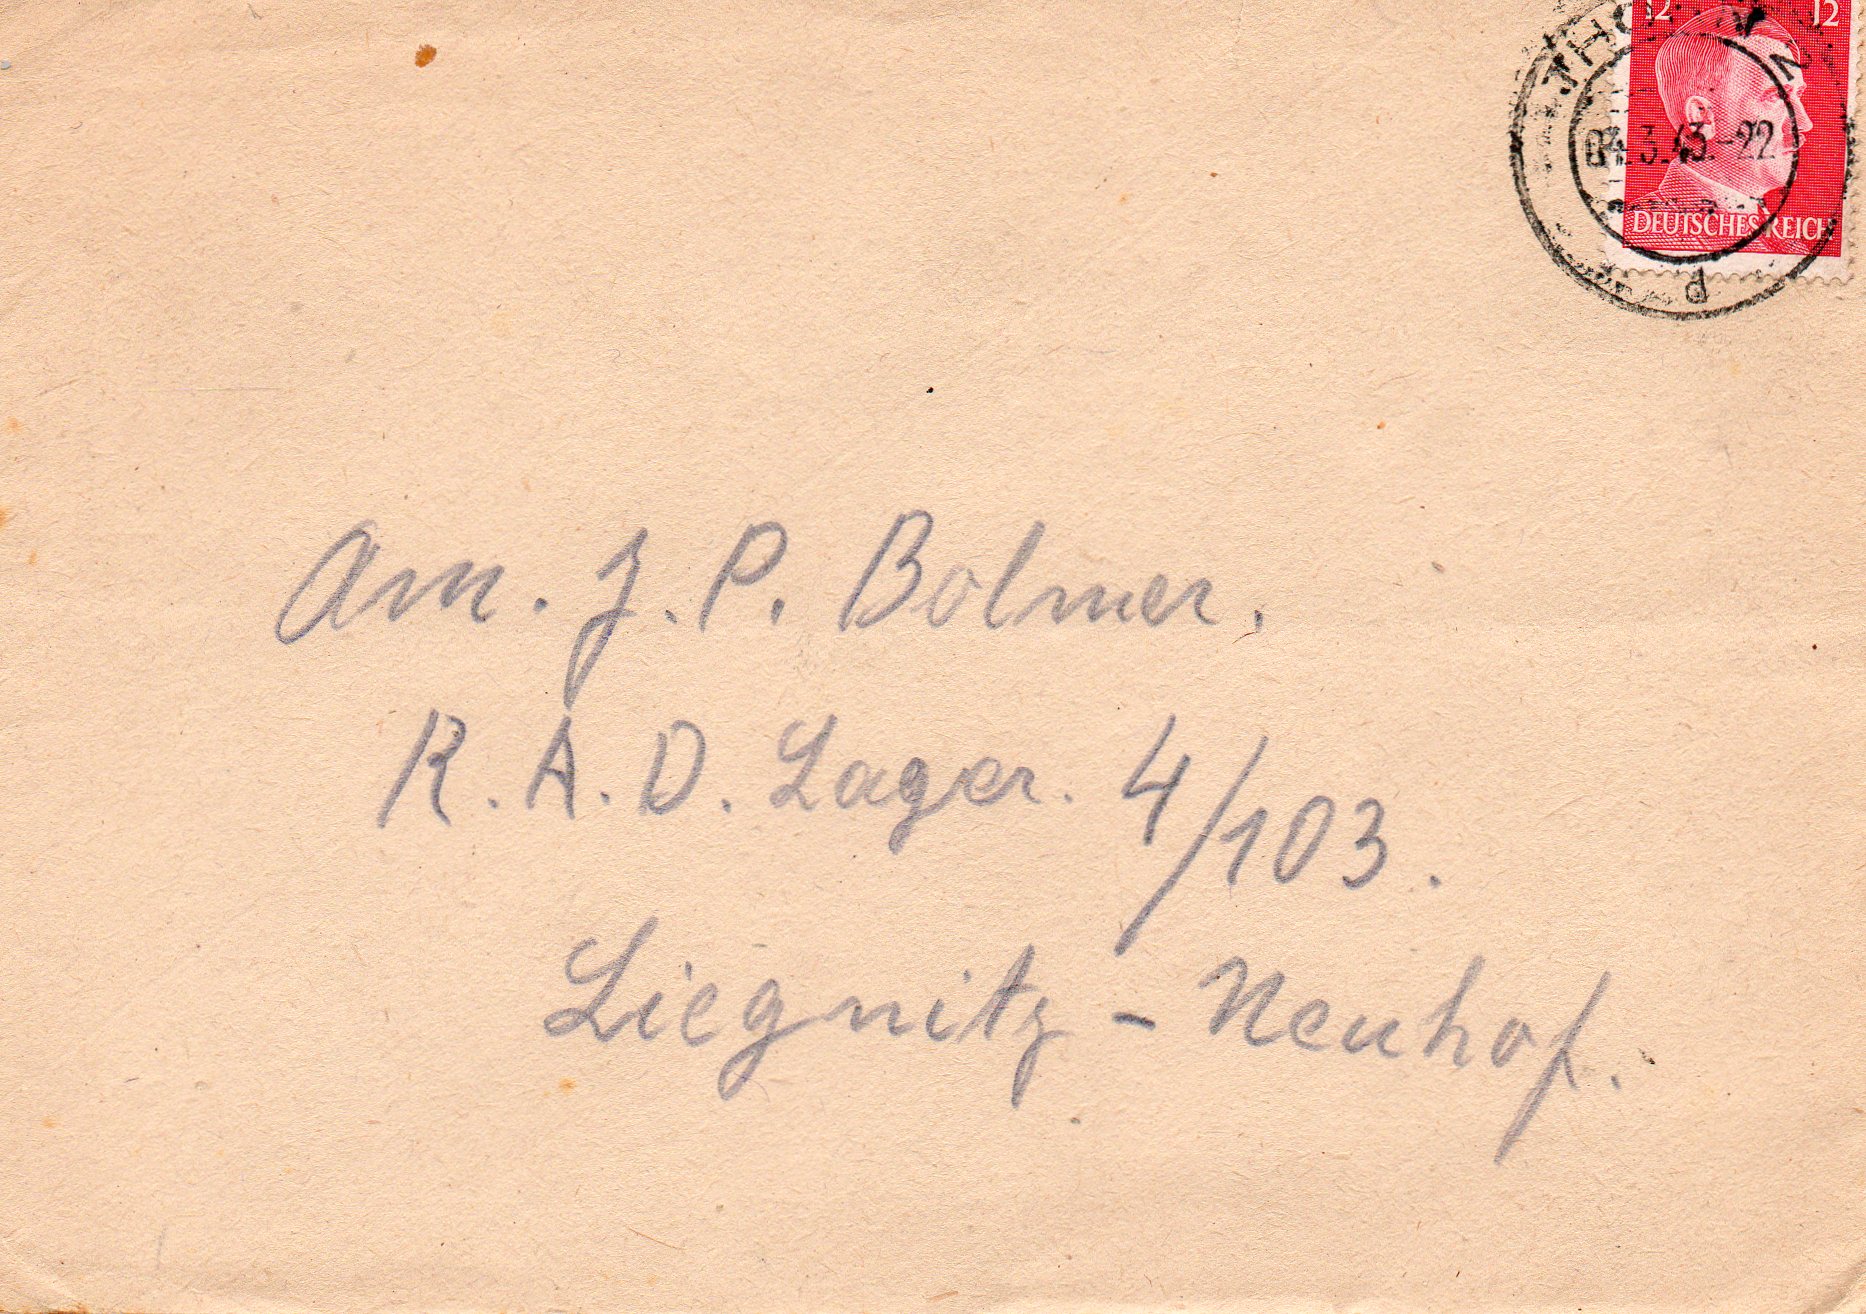 12 12
THORN 2
04.3.43.-22
DEUTSCHES REICH
d
Am. J. P. Bolmer.
R. A. D. Lager. 4/103.
Liegnitz - Neuhof.